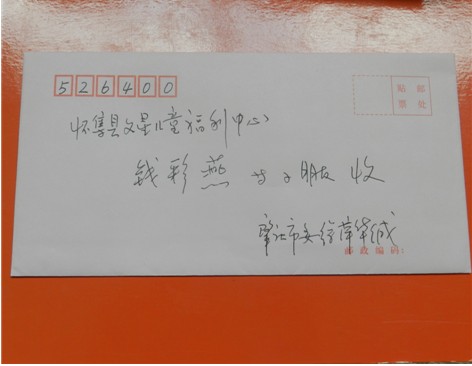 526400
贴 邮
票 处
怀集县文星儿童福利中心
钱彩燕 小朋友 收
肇庆市
邮政编码: